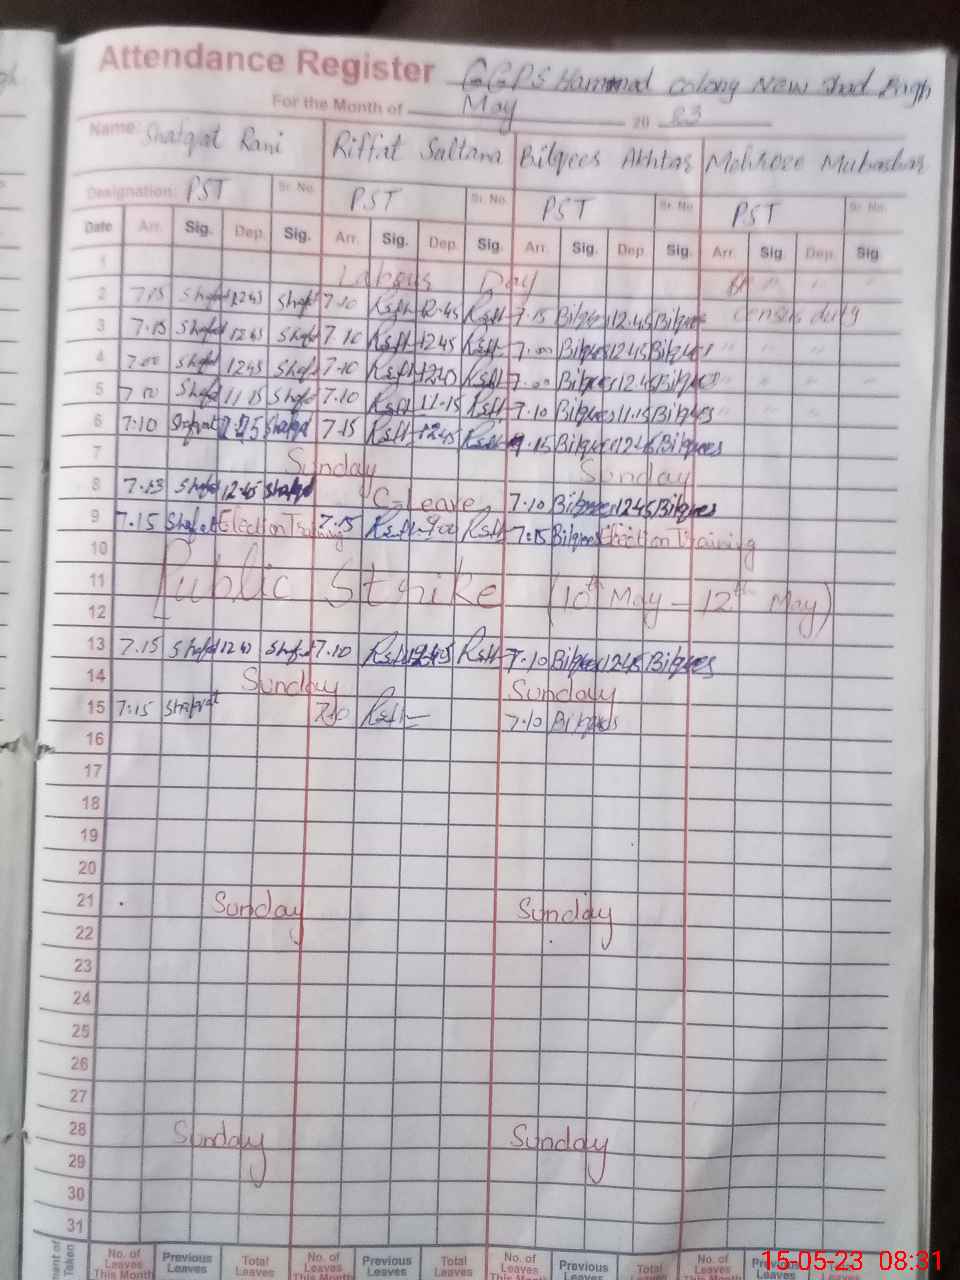 Attendance Register GGPS Hammad Colony New Shad Bagh
For the Month of May 20 23
Name: Shafqat Rani Riffat Sultana Bilqees Akhtar Mehreen Mubashar
Designation: PST Sr. No. PST Sr. No. PST Sr. No. PST Sr. No.
Date Arr. Sig. Dep. Sig. Arr. Sig. Dep. Sig. Arr. Sig. Dep. Sig. Arr. Sig. Dep. Sig
1 Labour Day " "
2 7.15 Shafqat 12.45 Shafqat 7.10 12.45 7.15 Bilqees 12.45 Bilqees census duty
3 7.15 Shafqat 12.45 Shafqat 7.10 12.45 7.00 Bilqees 12.45 Bilqees " " "
4 7.00 Shafqat 12.45 Shafqat 7.10 12.40 7.00 Bilqees 12.45 Bilqees " " "
5 7.00 Shafqat 11.15 Shafqat 7.10 11.15 7.10 Bilqees 11.15 Bilqees " " "
6 7:10 Shafqat Shafqat 7.15 12.45 7.15 Bilqees 12.45 Bilqees
7 Sunday Sunday
8 7.13 Shafqat 12.45 Shafqat C-Leave 7.10 Bilqees 12.45 Bilqees
9 7.15 Shafqat Election Training 7.15 9.00 7:15 Bilqees Election Training
10
11 Public Strike (10th May - 12th May)
12
13 7.15 Shafqat 12.45 Shafqat 7.10 12.45 7.10 Bilqees 12.45 Bilqees
14 Sunday Sunday
15 7:15 Shafqat 7.10 7.10 Bilqees
16
17
18
19
20
21 Sunday Sunday
22
23
24
25
26
27
28 Sunday Sunday
29
30
31
Taken No. of Leaves This Month Previous Leaves Total Leaves No. of Leaves This Month Previous Leaves Total Leaves No. of Leaves This Month Previous Leaves Total Leaves No. of Leaves This Month Previous Leaves
15-05-23 08:31